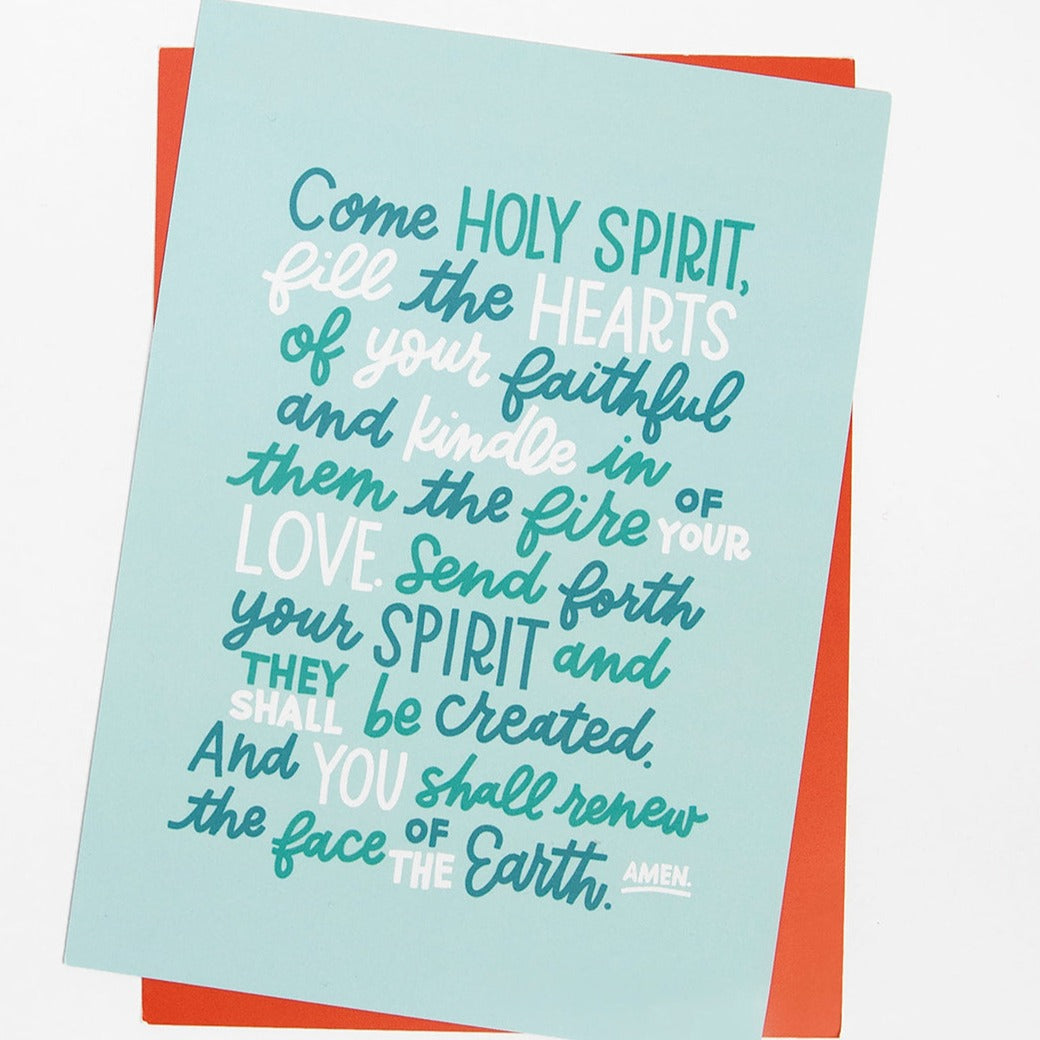 Come HOLY SPIRIT,
fill the HEARTS
of your faithful
and kindle in
them the fire OF YOUR
LOVE. Send forth
your SPIRIT and
THEY SHALL be created.
And YOU shall renew
the face OF THE Earth. AMEN.